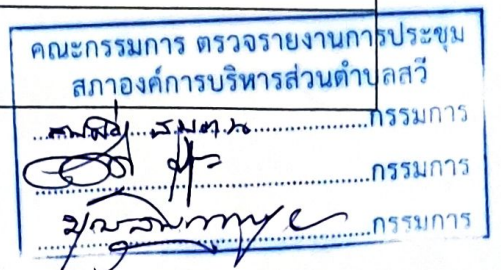 คณะกรรมการ ตรวจรายงานการประชุม
สภาองค์การบริหารส่วนตำบลสวี
กรรมการ
กรรมการ
กรรมการ